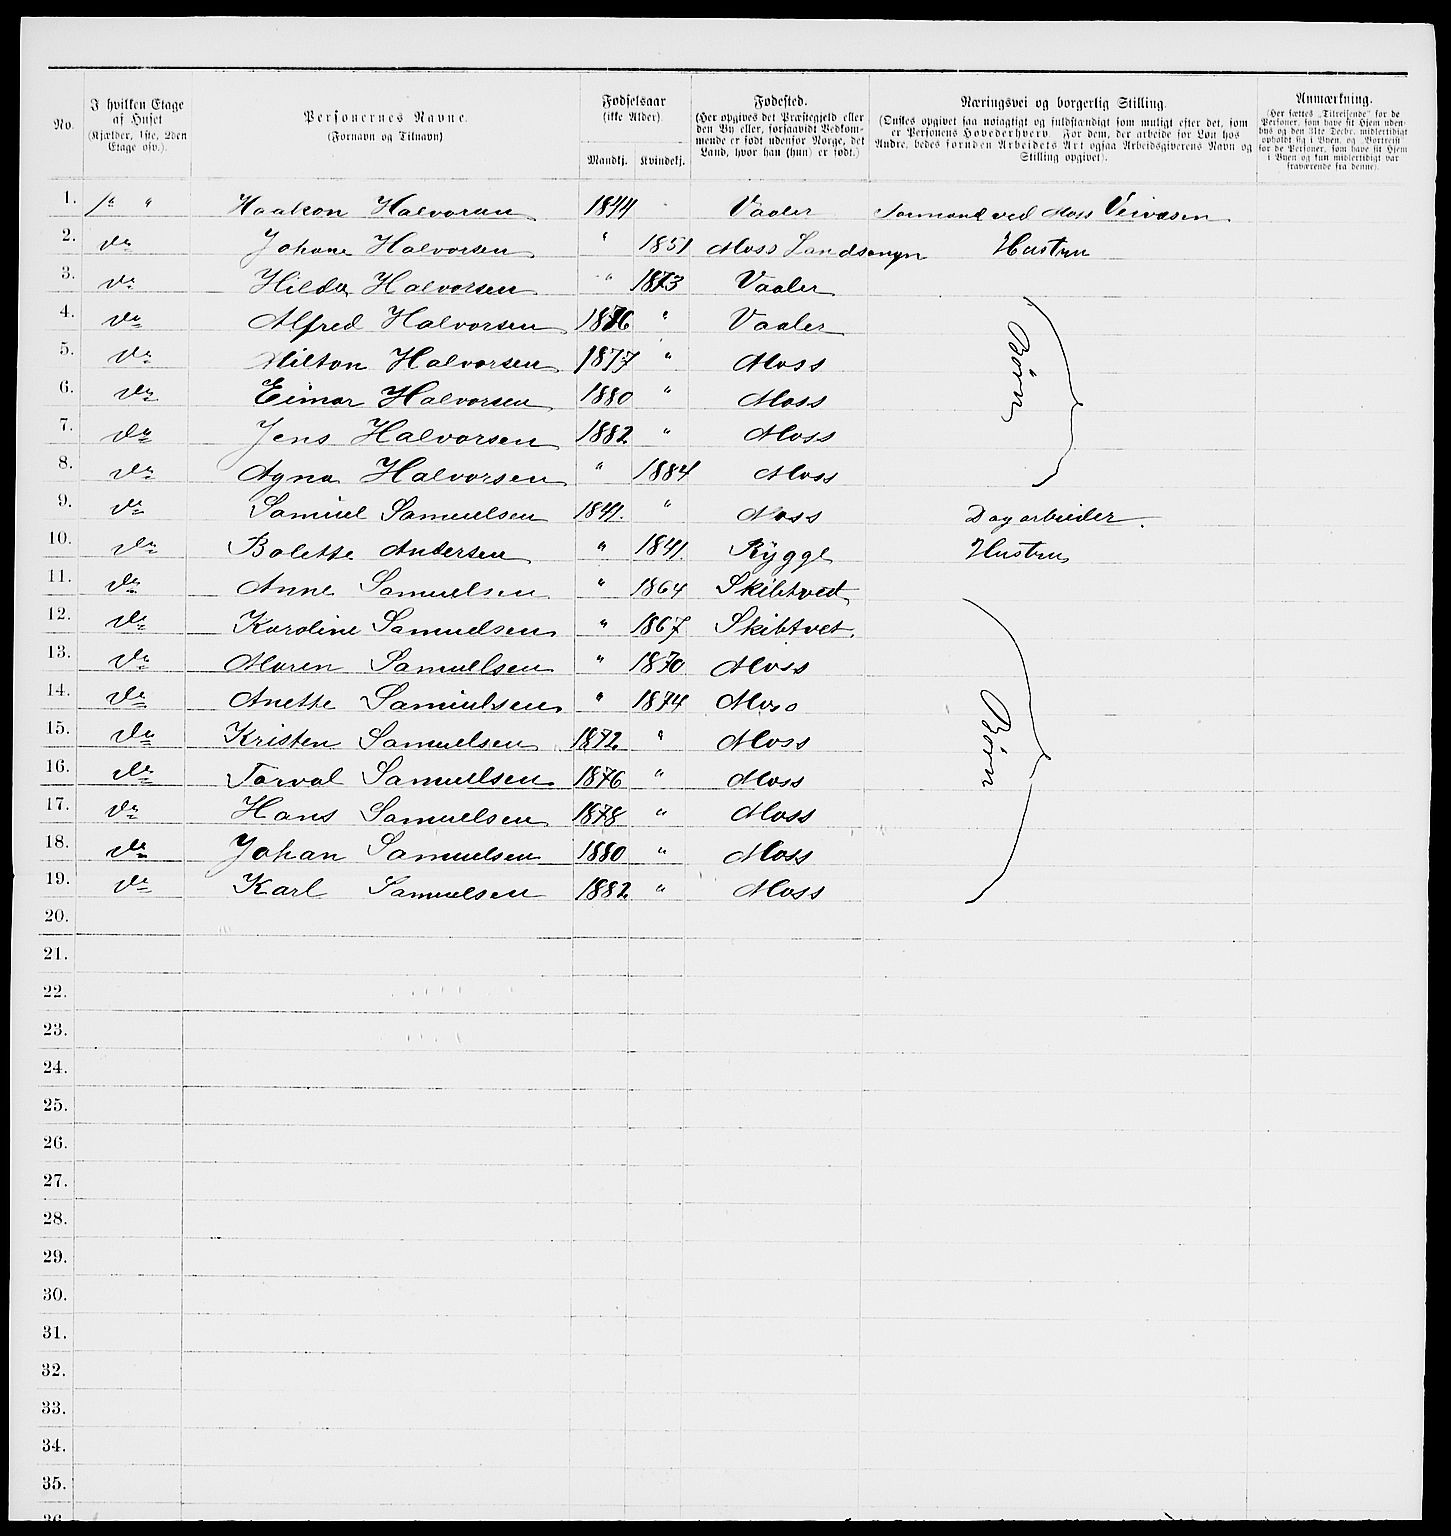 No.	I hvilken Etage af Huset (Kjælder, 1ste, 2den Etage osv.).	Personernes Navne. (Fornavn og Tilnavn)	Fødselsaar (ikke Alder). Mandkj.	Kvindekj.	Fødested. (Her opgives det Præstegjeld eller den By eller, forsaavidt Vedkommende er født udenfor Norge, det Land, hvor han (hun) er født.)	Næringsvei og borgerlig Stilling. (Ønskes opgivet saa nøiagtigt og fuldstændigt som muligt efter det, som er Personens Hovederhverv. For dem, der arbeide for Løn hos Andre, bedes foruden Arbeidets Art ogsaa Arbeidsgiverens Navn og Stilling opgivet).	Anmærkning. (Her sættes „Tilreisende" for de Personer, som have sit Hjem udenbys og den 31te Decbr. midlertidigt opholdt sig i Byen, og „Bortreist" for de Personer, som have sit Hjem i Byen og kun midlertidigt var fraværende fra denne).
1.	1ste "	Haakon Halvorsen	1844		Vaaler	Formand ved Moss Veivæsen
2.	do	Johane Halvorsen	"	1851	Moss Landsongn	Hustru
3.	do	Hilda Halvorsen	"	1873	Vaaler
4.	do	Alfred Halvorsen	1876	"	Vaaler	Børn
5.	do	Milton Halvorsen	1877	"	Moss
6.	do	Eimar Halvorsen	1880	"	Moss
7.	do	Jens Halvorsen	1882	"	Moss
8.	do	Agna Halvorsen	"	1884	Moss
9.	do	Samuel Samuelsen	1841.	"	Moss	Dagarbeider.
10.	do	Bolette Andersen	"	1841.	Rygge	Hustru
11.	do	Anne Samuelsen	"	1864	Skibtved
12.	do	Karoline Samuelsen	"	1867	Skibtvet.
13.	do	Maren Samuelsen	"	1870	Moss
14.	do	Anette Samuelsen	"	1874	Moss	Børn
15.	do	Kristen Samuelsen	1872	"	Moss
16.	do	Torval Samuelsen	1876	"	Moss
17.	do	Hans Samuelsen	1878	"	Moss
18.	do	Johan Samuelsen	1880	"	Moss
19.	do	Karl Samuelsen	1882	"	Moss
20.
21.
22.
23.
24.
25.
26.
27.
28.
29.
30.
31.
32.
33.
34.
35.
36